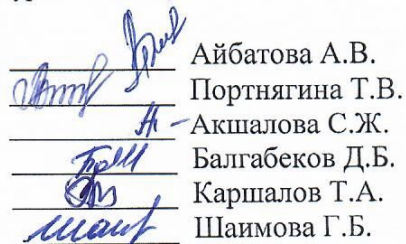 Айбатова А.В.
Портнягина Т.В.
Акшалова С.Ж.
Балгабеков Д.Б.
Каршалов Т.А.
Шаимова Г.Б.